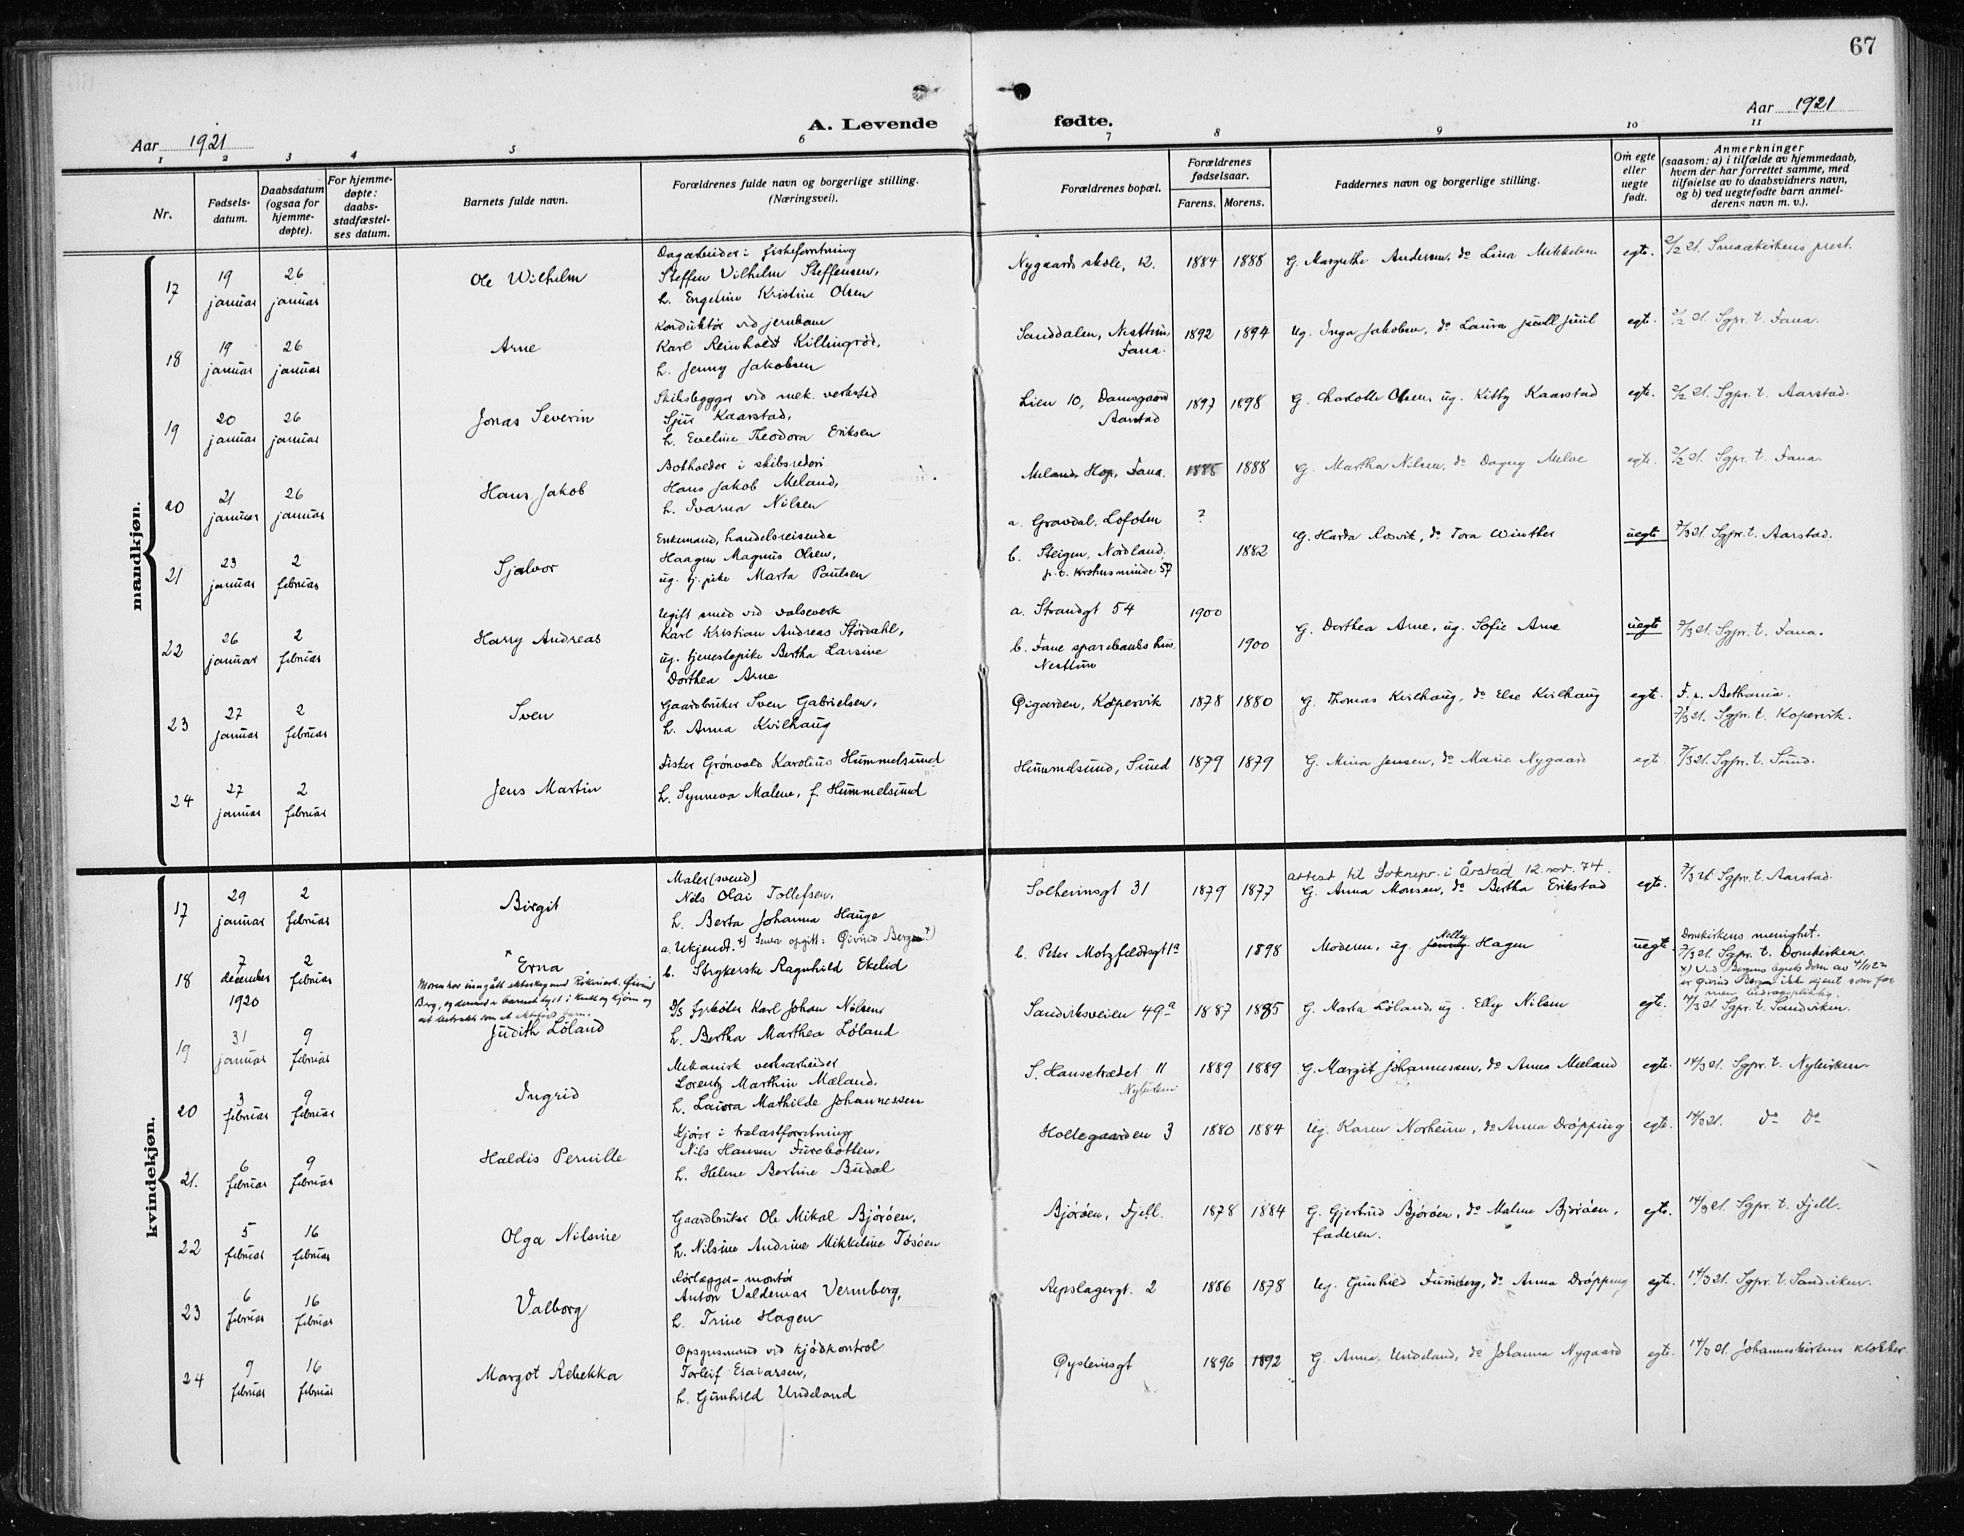 67
Aar 1921
A. Levende fødte.
Aar 1921
1 2 3 4 5 6 7 8 9 10 11
Nr.
Fødsels-
datum.
Daabsdatum
(ogsaa for
hjemme-
døpte).
For hjemme-
døpte:
daabs-
stadfæstel-
ses datum.
Barnets fulde navn.
Forældrenes fulde navn og borgerlige stilling.
(Næringsvei).
Forældrenes bopæl.
Forældrenes
fødselsaar.
Farens. Morens.
Faddernes navn og borgerlige stilling.
Om egte
eller
uegte
født.
Anmerkninger
(saasom: a) i tilfælde av hjemmedaab,
hvem der har forrettet samme, med
tilføielse av to daabsvidners navn,
og b) ved uegtefødte barn anmel-
derens navn m. v.).
mandkjøn.
17
19 januar
26 januar
Ole Wilhelm
Dagarbeider i fiskeforretning
Steffen Vilhelm Steffensen,
h. Engeline Kristine Olsen
Nygaards skole, 12.
1884 1888
G. Margrethe Andersen, do Lina Mikkelsen
egte.
2/2 21. Smaakirkens prest.
18
19 januar
26 januar
Arne
Konduktør ved jernbane
Karl Reinholdt Killingrød,
h. Jenny Jakobsen
Sanddalen, Nesttun,
Fana.
1892 1894
ug. Inga Jakobsen, do Laura Juull Juul
egte.
2/2 21. Sgpr. t. Fana.
19
20 januar
26 januar
Jonas Severin
Skibsbygger ved mek. verksted
Sjur Kaarstad,
h. Eveline Theodora Eriksen
Lien 10, Damsgaard
Aarstad
1897 1898
G. Charlotte Olsen, ug. Kitty Kaarstad
egte.
2/2 21. Sgpr. t. Aarstad.
20
21 januar
26 januar
Hans Jakob
Bokholder i skibsrederi
Hans Jakob Meland,
h. Ivarna Nilsen
Meland, Hop, Fana.
1885 1888
G. Martha Nilsen, do Dagny Melve
egte.
2/2 21. Sgpr. t. Fana.
21
23 januar
2 februar
Sjalvor
Enkemand, handelsreisende
Haagen Magnus Olsen,
ug. tj. pike Marta Paulsen
a. Gravdal, Lofoten
b. Steigen, Nordland,
?
1882
G. Harda Rosvik, do Tora Winther
uegte
7/3 21. Sgpr. t. Aarstad.
22
26 januar
2 februar
Harry Andreas
Ugift smed ved valseverk
Karl Kristian Andreas Størdahl,
ug. tjenestepike Bertha Larsine
Dorthea Arne
a. Strandgt 54
b. Fane sparebanks hus,
Nesttun
1900
1900
G. Dorthea Arne, ug. Sofie Arne
uegte
7/3 21. Sgpr. t. Fana.
23
27 januar
2 februar
Sven
Gaardbruker Sven Gabrielsen,
h. Anna Kvilhaug
Øigarden, Kopervik
1878 1880
G. Thomas Kvilhaug, do Else Kvilhaug
egte.
F. p. Bethania.
7/3 21. Sgpr. t. Kopervik.
24
27 januar
2 februar
Jens Martin
Fisker Grønvald Karolius Hummelsund
h. Synneva Malene, f. Hummelsund
Hummelsund, Sund
1879 1879
G. Mina Jensen, do Marie Nygaard
egte
7/3 21. Sgpr. t. Sund.
kvindekjøn.
17
29 januar
2 februar
Birgit
Maler (svend)
Nils Olai Tollefsen,
h. Berta Johanna Hauge
Solheimsgt 31
1879 1877
attest til Soknepr. i Årstad 12. nov. 74.
G. Anna Monsen, do Bertha Erikstad
egte.
7/3 21. Sgpr. t. Aarstad.
18
7 december 1920
2 februar
Erna
a. Ukjendt. Senere opgitt: Øivind Berge
b. Strykerske Ragnhild Ekelid
b. Peter Motzfeldtsgt 1a
1898
Moderen, ug. Nelly Hagen
uegte
Domkirkens menighet.
7/3 21. Sgpr. t. Domkirken.
19
31 januar
9 februar
Judith Løland
D/S fyrbøter Karl Johan Nilsen
h. Bertha Marthea Løland
Sandviksveien 49a
1887 1895
G. Marta Løland, ug. Elly Nilsen
egte.
14/3 21 Sgpr. t. Sandviken.
20
3 februar
9 februar
Ingrid
Mekanisk verksarbeider
Lorentz Marthin Mæland,
h. Laura Mathilde Johannessen
S. Hansstrædet 11
Nykirken
1889 1889
G. Margit Johannessen, do Anna Mæland
egte.
14/3 21. Sgpr. t. Nykirken.
21.
6 februar
9 februar
Haldis Pernille
Kjører i trelastforretning
Nils Hansen Furebotten,
h. Helene Bertine Budal
Holtegaarden 3
1880 1884
ug. Karen Norheim, do Anna Drøpping
egte.
14/3 21. do Do
22
5 februar
16 februar
Olga Nilsine
Gaardbruker Ole Mikal Bjørøen,
h. Nilsine Andrine Mikkeline Tøsøen
Bjørøen, Fjell.
1878 1884
G. Gjertrud Bjørøen, do Malene Bjørøen,
faderen.
egte.
14/3 21. Sgpr. t. Fjell.
23
6 februar
16 februar
Valborg
Rørlægger-montør
Anton Valdemar Vermberg,
h. Trine Hagen
Repslagergt. 2
1886 1878
ug. Gunhild Furuberg, do Anna Drøpping
egte.
14/3 21. Sgpr. t. Sandviken.
24
9 februar
16 februar
Margot Rebekka
Opsynsmand ved kjødkontrol
Torleif Esaiassen,
h. Gunhild Undeland
Øysteinsgt
1896 1892
G. Anna Undeland, do Johanna Nygaard
egte.
14/3 21. Johanneskirkens klokker.